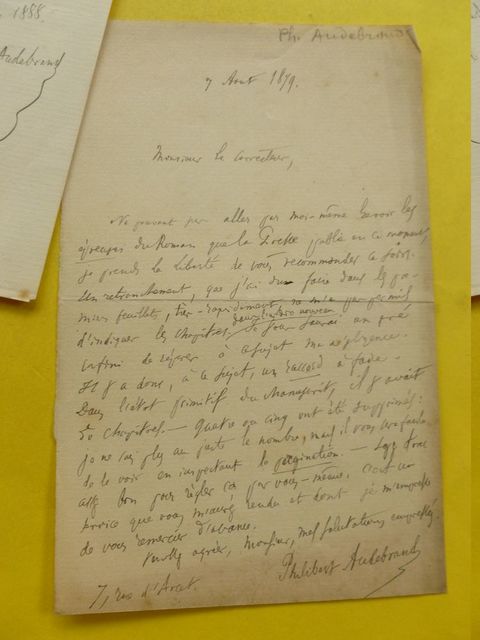 1888.
Audebrand
Ph. Audebrand
7 Aout 1879.
Monsieur le correcteur,
Ne pouvant pas aller par moi-même revoir les
épreuves du Roman que la publie en ce moment,
je prends la liberté de vous recommander ce soin.
Un retranchement, que j'ai dû faire dans les pre-
miers feuillets, très-rapidement, ne m'a pas permis
d'indiquer les chapitres dans l'ordre nouveau. Je
à ce sujet ma
Il y a donc, à ce sujet, un raccord à faire.
Dans l'état primitif du manuscrit, il y avait
50 chapitres. — Quatre ou cinq ont été supprimés:
je ne sais plus au juste le nombre, mais il vous sera facile
de le voir en inspectant la pagination. —
assez bon pour régler ça par vous-même. C'est un
service que vous m'aurez rendu et dont je m'empresse
de vous remercier d'avance.
Veuillez agréer, Monsieur, mes salutations empressées.
Philibert Audebrand
7, rue d'